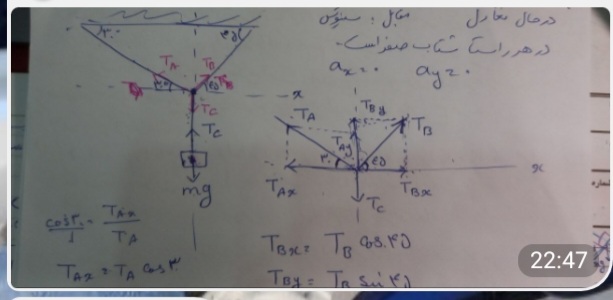 در حال تعادل
مقابل : سینوس
در هر راستا شتاب صفر است.
ax = 0 ay = 0
۳۰ ۴۵
TA TB
۳۰ ۴۵
TC
TC
mg
x
TA TBy TB
TAy
۳۰ ۴۵
x
TAx TBx
TC
cos ۳۰ / 1 = TAx / TA
TAx = TA cos ۳۰
TBx = TB cos ۴۵
TBy = TB sin ۴۵
22:47